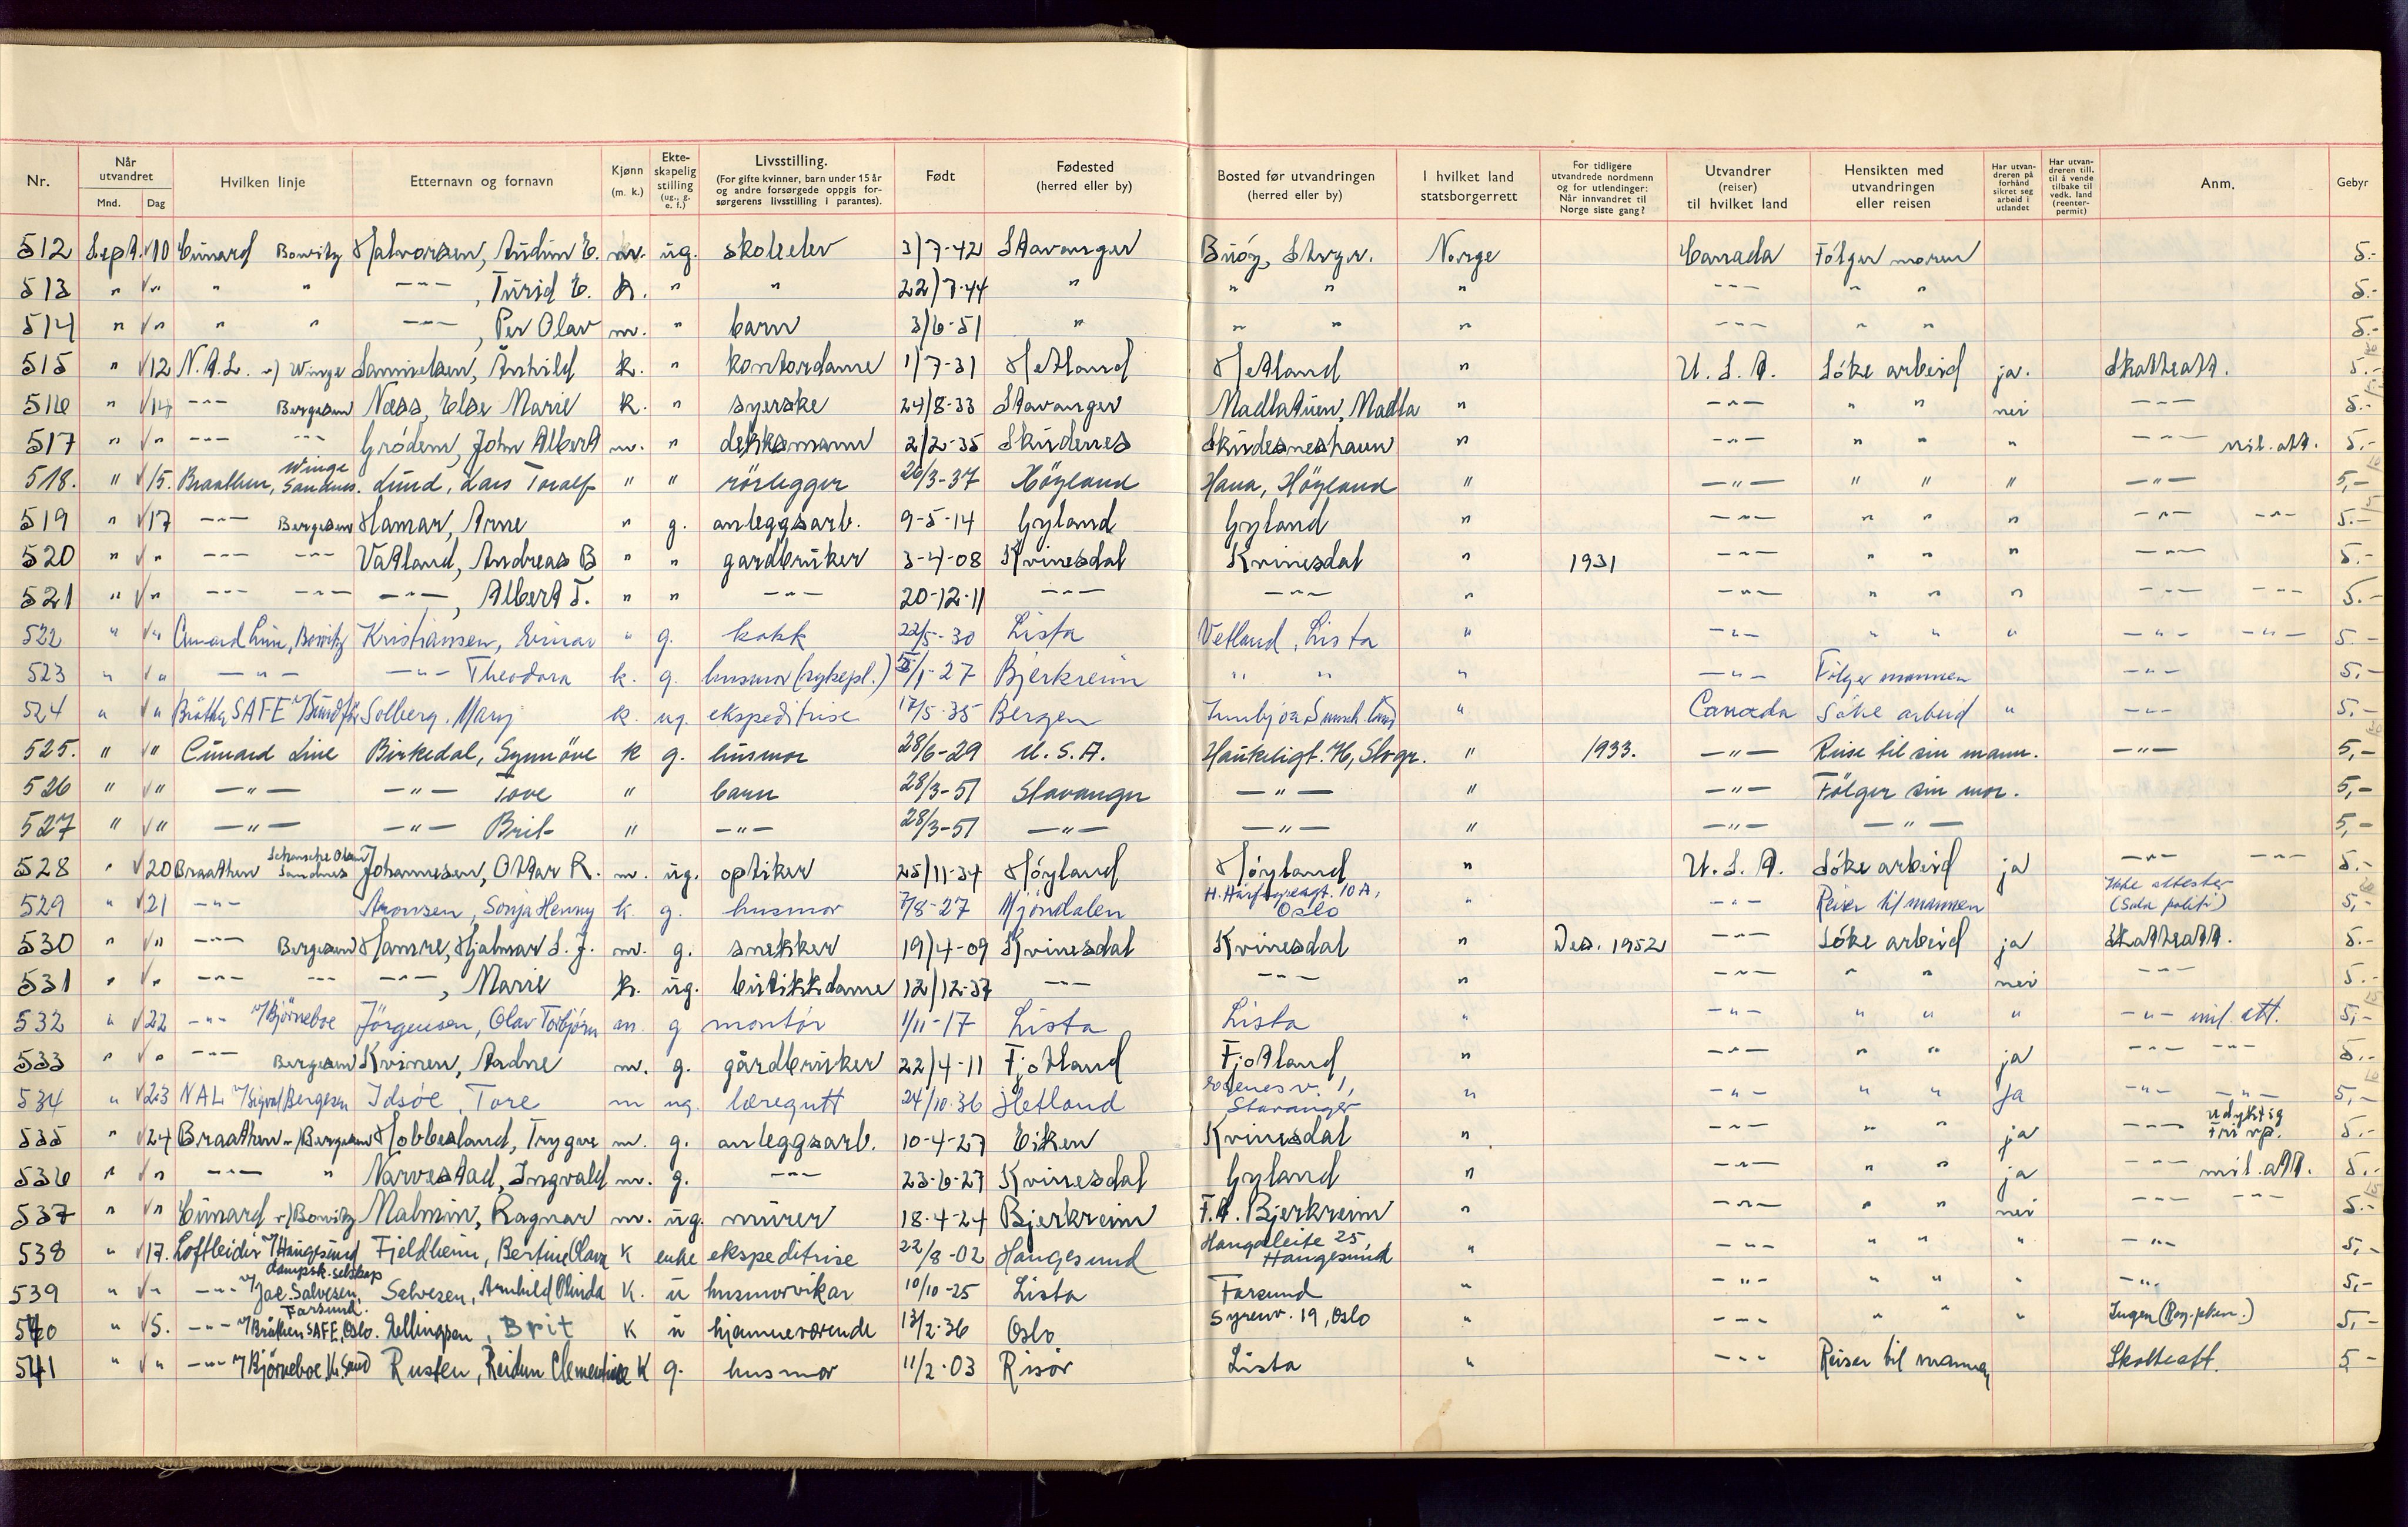 Nr. Når utvandret Mnd. Dag Hvilken linje Etternavn og fornavn Kjønn (m. k.) Ekteskapelig stilling (ug., g. e. f.) Livsstilling. (For gifte kvinner, barn under 15 år og andre forsørgede oppgis forsørgerens livsstilling i parantes). Født Fødested (herred eller by) Bosted før utvandringen (herred eller by) I hvilket land statsborgerrett For tidligere utvandrede nordmenn og for utlendinger: Når innvandret til Norge siste gang? Utvandrer (reiser) til hvilket land Hensikten med utvandringen eller reisen Har utvandreren på forhånd sikret seg arbeid i utlandet Har utvandreren till. til å vende tilbake til vedk. land (reenterpermit) Anm. Gebyr
512 Sept. 10 Cunard Bowitz Halvorsen, Audun E. m. ug. skoleelev 3/7-42 Stavanger Buøy, Stvgr. Norge Canada Følger moren 5.-
513 " " " " -"-, Turid E. k. " " 22/7-44 " " " " -"- " " 5.-
514 " " " " -"-, Per Olav m. " barn 3/6-51 " " " " -"- " " 5.-
515 " 12 N.A.L. v/ Winge Samuelsen, Arnhild k. " kontordame 1/7-31 Hetland Hetland " U.S.A. Søke arbeid ja. Skatteatt. 5.-
516 " 14 -"- Bergesen Næss, Else Marie k. " syerske 24/8-33 Stavanger Madlatuen, Madla " -"- " " nei -"- 5.-
517 " " -"- -"- Grødem, John Albert m. " dekksmann 2/2-35 Skudenes Skudesneshavn " -"- " " " -"- mil. att. 5.-
518. " 15. Braathen, Winge Sandnes. Lund, Lars Toralf " " rørlegger 26/3-37 Høyland Hana, Høyland " -"- " " " -"- 5,-
519 " 17 -"- Bergesen Hamar, Arne " g. anleggsarb. 9-5-14 Gyland Gyland " -"- " " " -"- -"- 5.-
520 " " -"- -"- Vatland, Andreas B " " gardbruker 3-4-08 Kvinesdal Kvinesdal " 1931 -"- " " " -"- 5.-
521 " " -"- -"- -"-, Albert T. " " -"- 20-12-11 -"- -"- " -"- " " " -"- -"- 5.-
522 " " Cunard Line, Bowitz Kristiansen, Einar " g. kokk 22/5-30 Lista Vetland, Lista " -"- " " " -"- -"- 5.-
523 " " -"- -"- Theodora k. g. husmor (sykepl.) /1-27 Bjerkreim " " " -"- Følger mannen -"- 5,-
524 " " Bråthen SAFE Solberg, Mary k. ug. ekspeditrise 17/5-35 Bergen " Canada Søke arbeid " -"- 5,-
525. " " Cunard Line Birkedal, Synnöve k g. husmor 28/6-29 U.S.A. Haukeligt. 16, Stvgr. " 1933. -"- Reise til sin mann. -"- 5,-
526 " " -"- -"- Tove " barn 28/3-51 Stavanger -"- " -"- Följer sin mor. 5,-
527 " " -"- -"- Brit " -"- 28/3-51 -"- -"- " -"- -"- 5,-
528 " 20 Braathen Sandnes Johannesen, Ottar R. m. ug. optiker 25/11-34 Høyland Høyland " U.S.A. Søke arbeid ja -"- -"- 5.-
529 " 21 -"- Aronsen, Sonja Henny k. g. husmor 7/8-27 Mjøndalen H. Hårfagresgt. 10 A, Oslo " -"- Reiser til mannen Ikke attester (Sola politi) 5,-
530 " " -"- Bergesen Hamre, Hjalmar S. J. m. g. snekker 19/4-09 Kvinesdal Kvinesdal " Des. 1952 -"- Søke arbeid ja Skatteatt. 5.-
531 " " -"- -"- -"-, Marie k. ug. butikkdame 12/12-37 -"- -"- " -"- " " nei -"- 5.-
532 " 22 -"- v/Björneboe Jörgensen, Olav Torbjörn m. g montör 1/11-17 Lista Lista " -"- " " " -"- mil. att. 5,-
533 " " -"- Bergesen Kvinen, Aadne m. g. gårdbruker 22/4-11 Fjotland Fjotland " -"- " " ja -"- -"- 5.-
534 " 23 NAL v/Sigval Bergesen Idsøe, Tore m ug. læregutt 24/10-36 Hetland Stavanger " -"- " " Ja -"- -"- 5,-
535 " 24 Braathen v/Bergesen Hobbesland, Trygve m. g. anleggsarb. 10-4-27 Eiken Kvinesdal " -"- " " ja -"- udyktig Fri vp. 5.-
536 " " -"- " Narvestad, Ingvald m. g. -"- 23-6-27 Kvinesdal Gyland " -"- " " ja -"- mil. att. 5.-
537 " " Cunard v/Bowitz Malmin, Ragnar m. ug. murer 18-4-24 Bjerkreim Bjerkreim " -"- " " nei -"- -"- 5.-
538 " 17. Loftleidir v/Haugesund dampsk.selskap Fjeldheim, Bertine Olava K enke ekspeditrise 22/8-02 Haugesund Haugaleite 25, Haugesund " -"- " " " -"- 5,-
539 " " -"- v/Jac. Salvesen, Farsund. Salvesen, Arnhild Olinda K. u husmorvikar 10/10-25 Lista Farsund " -"- " " " -"- 5,-
540 " 5. -"- v/Bråthen SAFE, Oslo. Ellingsen, Brit K u hjemmeværende 13/2-36 Oslo Syrenv. 19, Oslo " -"- " " " Ingen 5,-
541 " " -"- v/Björneboe, Kr.Sand Rusten, Reidun Clementine K g. husmor 11/2-03 Risör Lista " -"- Reiser til mannen Skatteatt. 5-